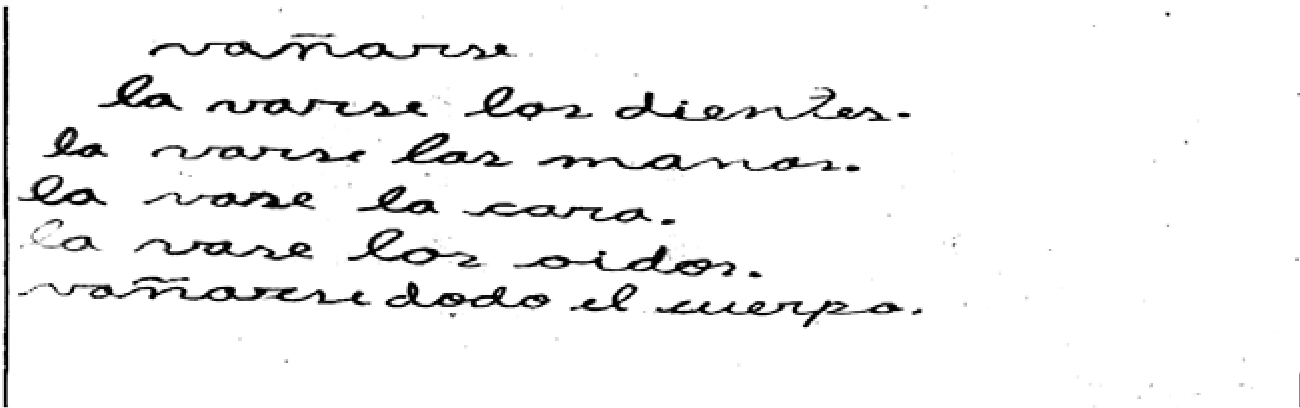 vañarse
la varse los dientes.
la varse las manos.
la vase la cara.
la vase los oidos.
vañarse dodo el cuerpo.